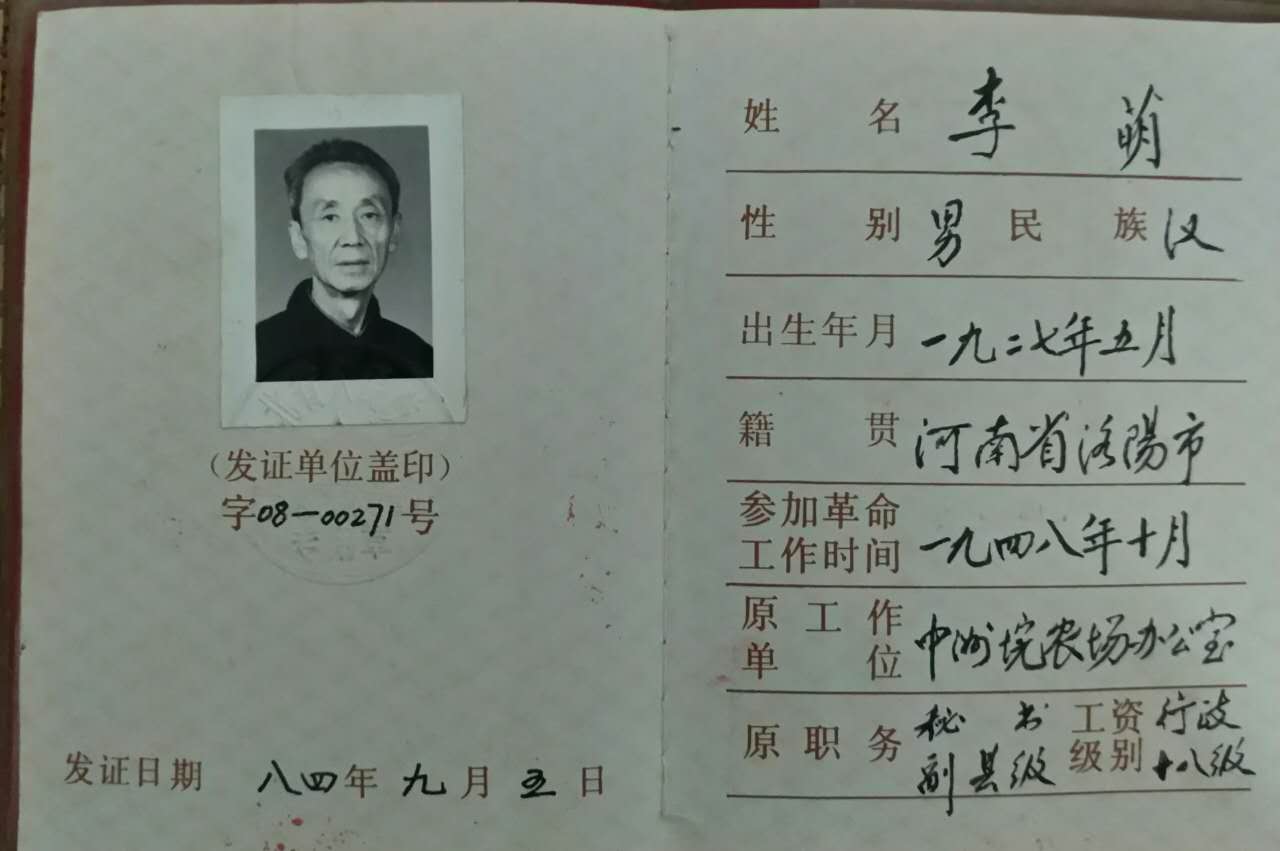 （发证单位盖印）
字08—00271号
发证日期 八四年九月五日
姓名 李萌
性别 男 民族 汉
出生年月 一九二七年五月
籍贯 河南省洛陽市
参加革命
工作时间 一九四八年十月
原工作
单位 中洲垸农场办公室
原职务 秘书 副县级 工资级别 行政十八级